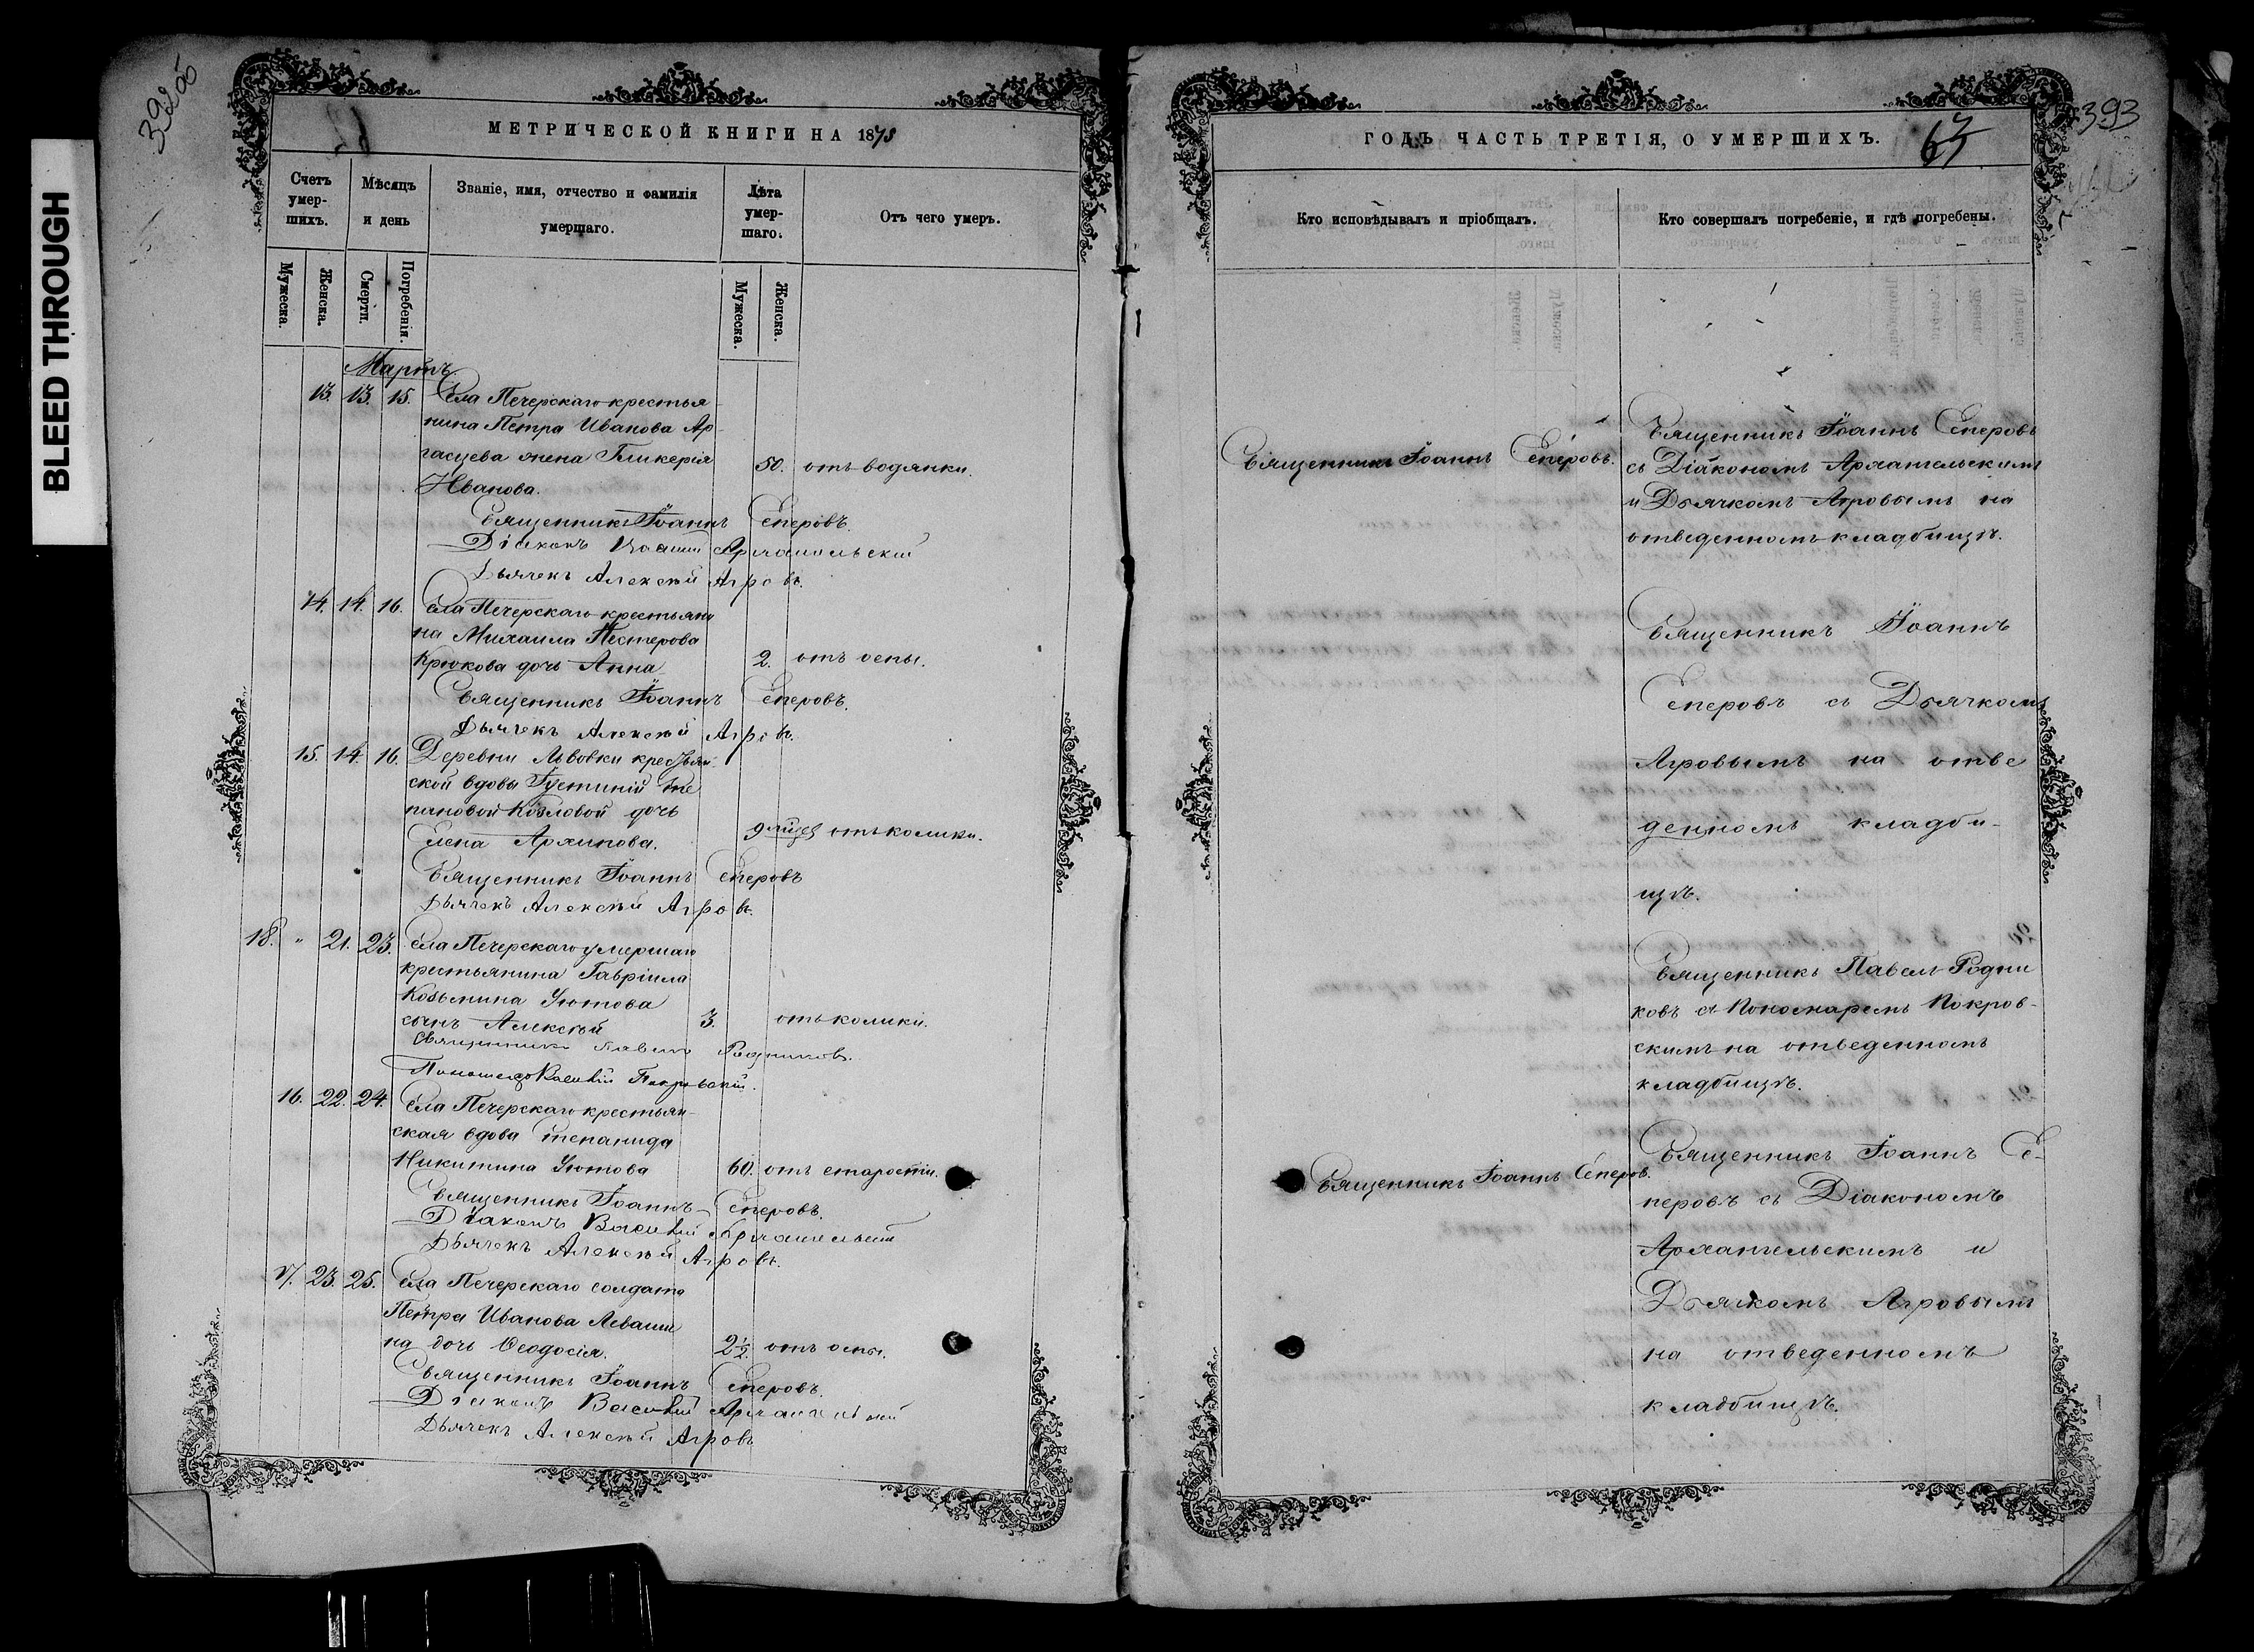 BLEED THROUGH
МЕТРИЧЕСКОЙ КНИГИ НА 1878
Счетъ умер-шихъ.
Мѣсяцъ и день
Званіе, имя, отчество и фамилія умершаго.
Лѣта умер-шаго.
Отъ чего умеръ.
Мужеска.
Женска.
Смерти.
Погребенія.
Мужеска.
Женска.
Мартъ.
13. 13. 15. Села Печерскаго крестья-
нина Петра Иванова Ар-
гасцева жена Гликерія 50. отъ водянки.
Иванова.
Священникъ Іоаннъ Сеперовъ.
Діаконъ Архангельскій
Дьячекъ Алексѣй Агровъ.
14. 14. 16. Села Печерскаго крестьяни
на Михаила Нестерова
Крюкова дочь Анна 2. отъ оспы.
Священникъ Іоаннъ Сеперовъ.
Дьячекъ Алексѣй Агровъ.
15. 14. 16. Деревни Львовки крестьян-
ской вдовы Іустиніи Сте
пановой Козловой дочь
Елена Архипова. 9 мѣсяц отъ колики.
Священникъ Іоаннъ Сеперовъ
Дьячекъ Алексѣй Агровъ.
18. " 21. 23. Села Печерскаго умершаго
крестьянина Гавріила
Козьмина Уютова
сынъ Алексѣй 3. отъ колики.
Священникъ Павелъ Родниковъ.
Пономарь Василій Покровскій.
16. 22. 24. Села Печерскаго крестьян-
ская вдова Степанида
Никитина Уютова 60. отъ старости.
Священникъ Іоаннъ Сеперовъ.
Діаконъ Василій Архангельскій
Дьячекъ Алексѣй Агровъ.
17. 23. 25. Села Печерскаго солдата
Петра Иванова Леваши
на дочь Ѳеодосія. 2½. отъ оспы.
Священникъ Іоаннъ Сеперовъ.
Діаконъ Василій Архангельскій
Дьячекъ Алексѣй Агровъ
393
ГОДЪ ЧАСТЬ ТРЕТІЯ, О УМЕРШИХЪ.
Кто исповѣдывалъ и пріобщалъ.
Кто совершалъ погребеніе, и гдѣ погребены.
Священникъ Іоаннъ Сеперовъ.
Священникъ Іоаннъ Сеперовъ
съ Діакономъ Архангельскимъ
и Дьячкомъ Агровымъ на
отведенномъ кладбищѣ.
Священникъ Іоаннъ
Сеперовъ съ Дьячкомъ
Агровымъ на отве
денномъ кладби-
щѣ.
Священникъ Павелъ Родни
ковъ съ Пономаремъ Покров-
скимъ на отведенномъ
кладбищѣ.
Священникъ Іоаннъ Сеперов.
Священникъ Іоаннъ Се-
перовъ съ Діакономъ
Архангельскимъ и
Дьячкомъ Агровымъ
на отведенномъ
кладбищѣ.